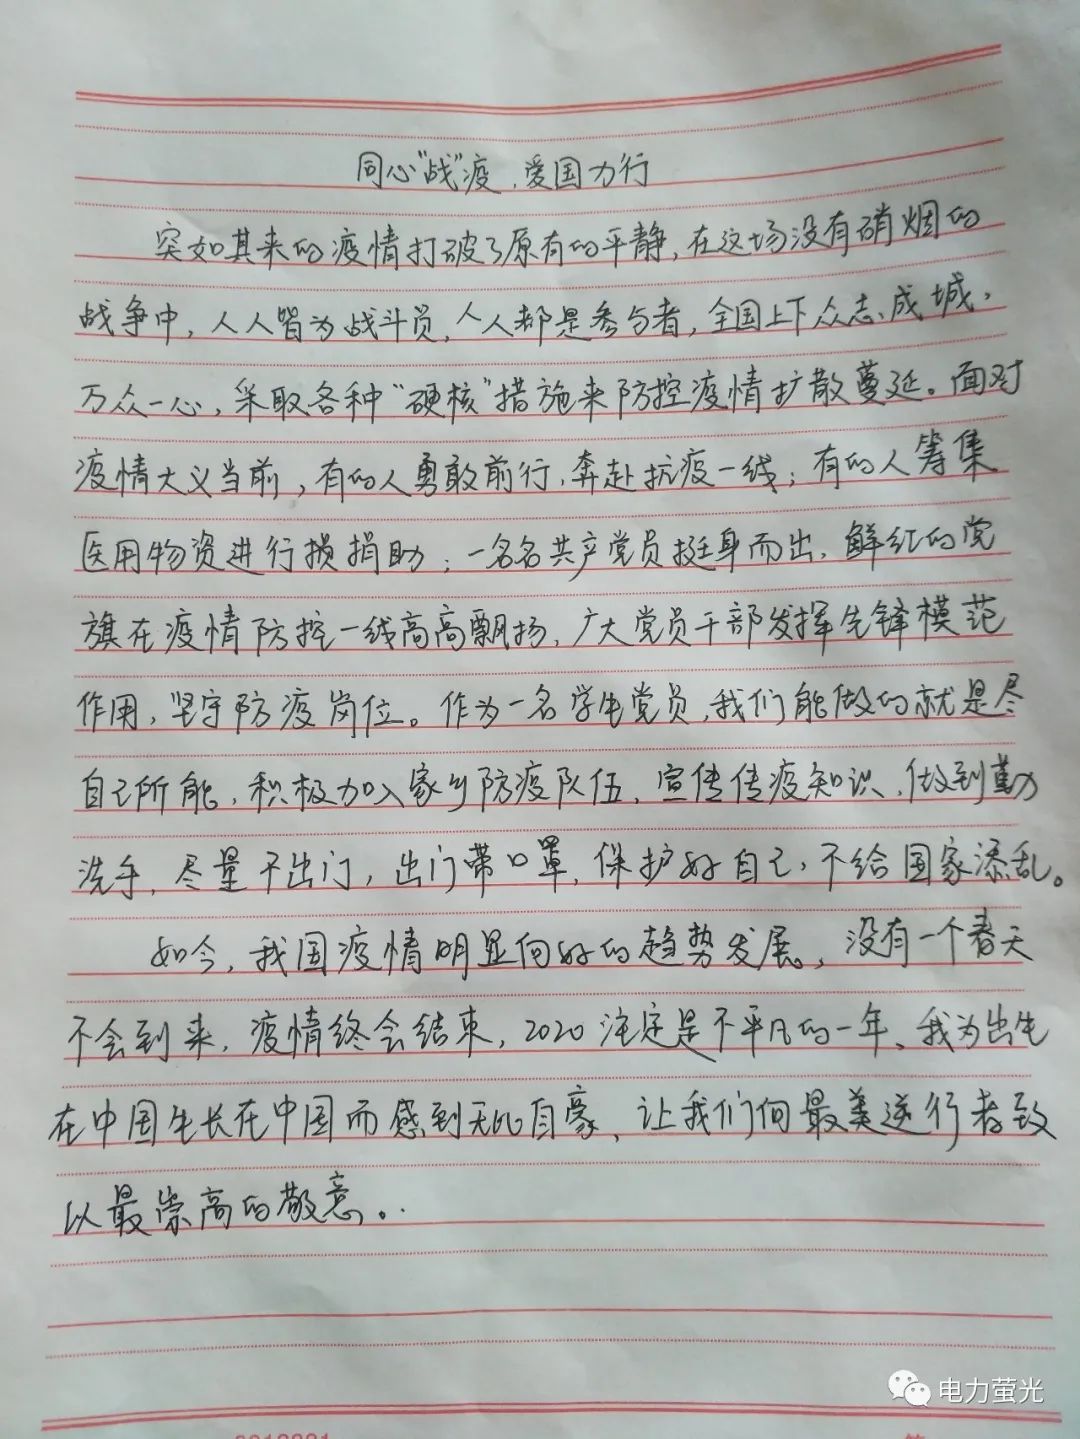 同心"战"疫，爱国力行
突如其来的疫情打破了原有的平静，在这场没有硝烟的
战争中，人人皆为战斗员，人人都是参与者，全国上下众志成城，
万众一心，采取各种"硬核"措施来防控疫情扩散蔓延。面对
疫情大义当前，有的人勇敢前行，奔赴抗疫一线；有的人筹集
医用物资进行损捐助；一名名共产党员挺身而出，鲜红的党
旗在疫情防控一线高高飘扬，广大党员干部发挥先锋模范
作用，坚守防疫岗位。作为一名学生党员，我们能做的就是尽
自己所能，积极加入家乡防疫队伍，宣传传疫知识，做到勤
洗手，尽量不出门，出门带口罩，保护好自己，不给国家添乱。
如今，我国疫情明显向好的趋势发展，没有一个春天
不会到来，疫情终会结束，2020注定是不平凡的一年、我为出生
在中国生长在中国而感到无比自豪、让我们向最美逆行者致
以最崇高的敬意。
电力萤光